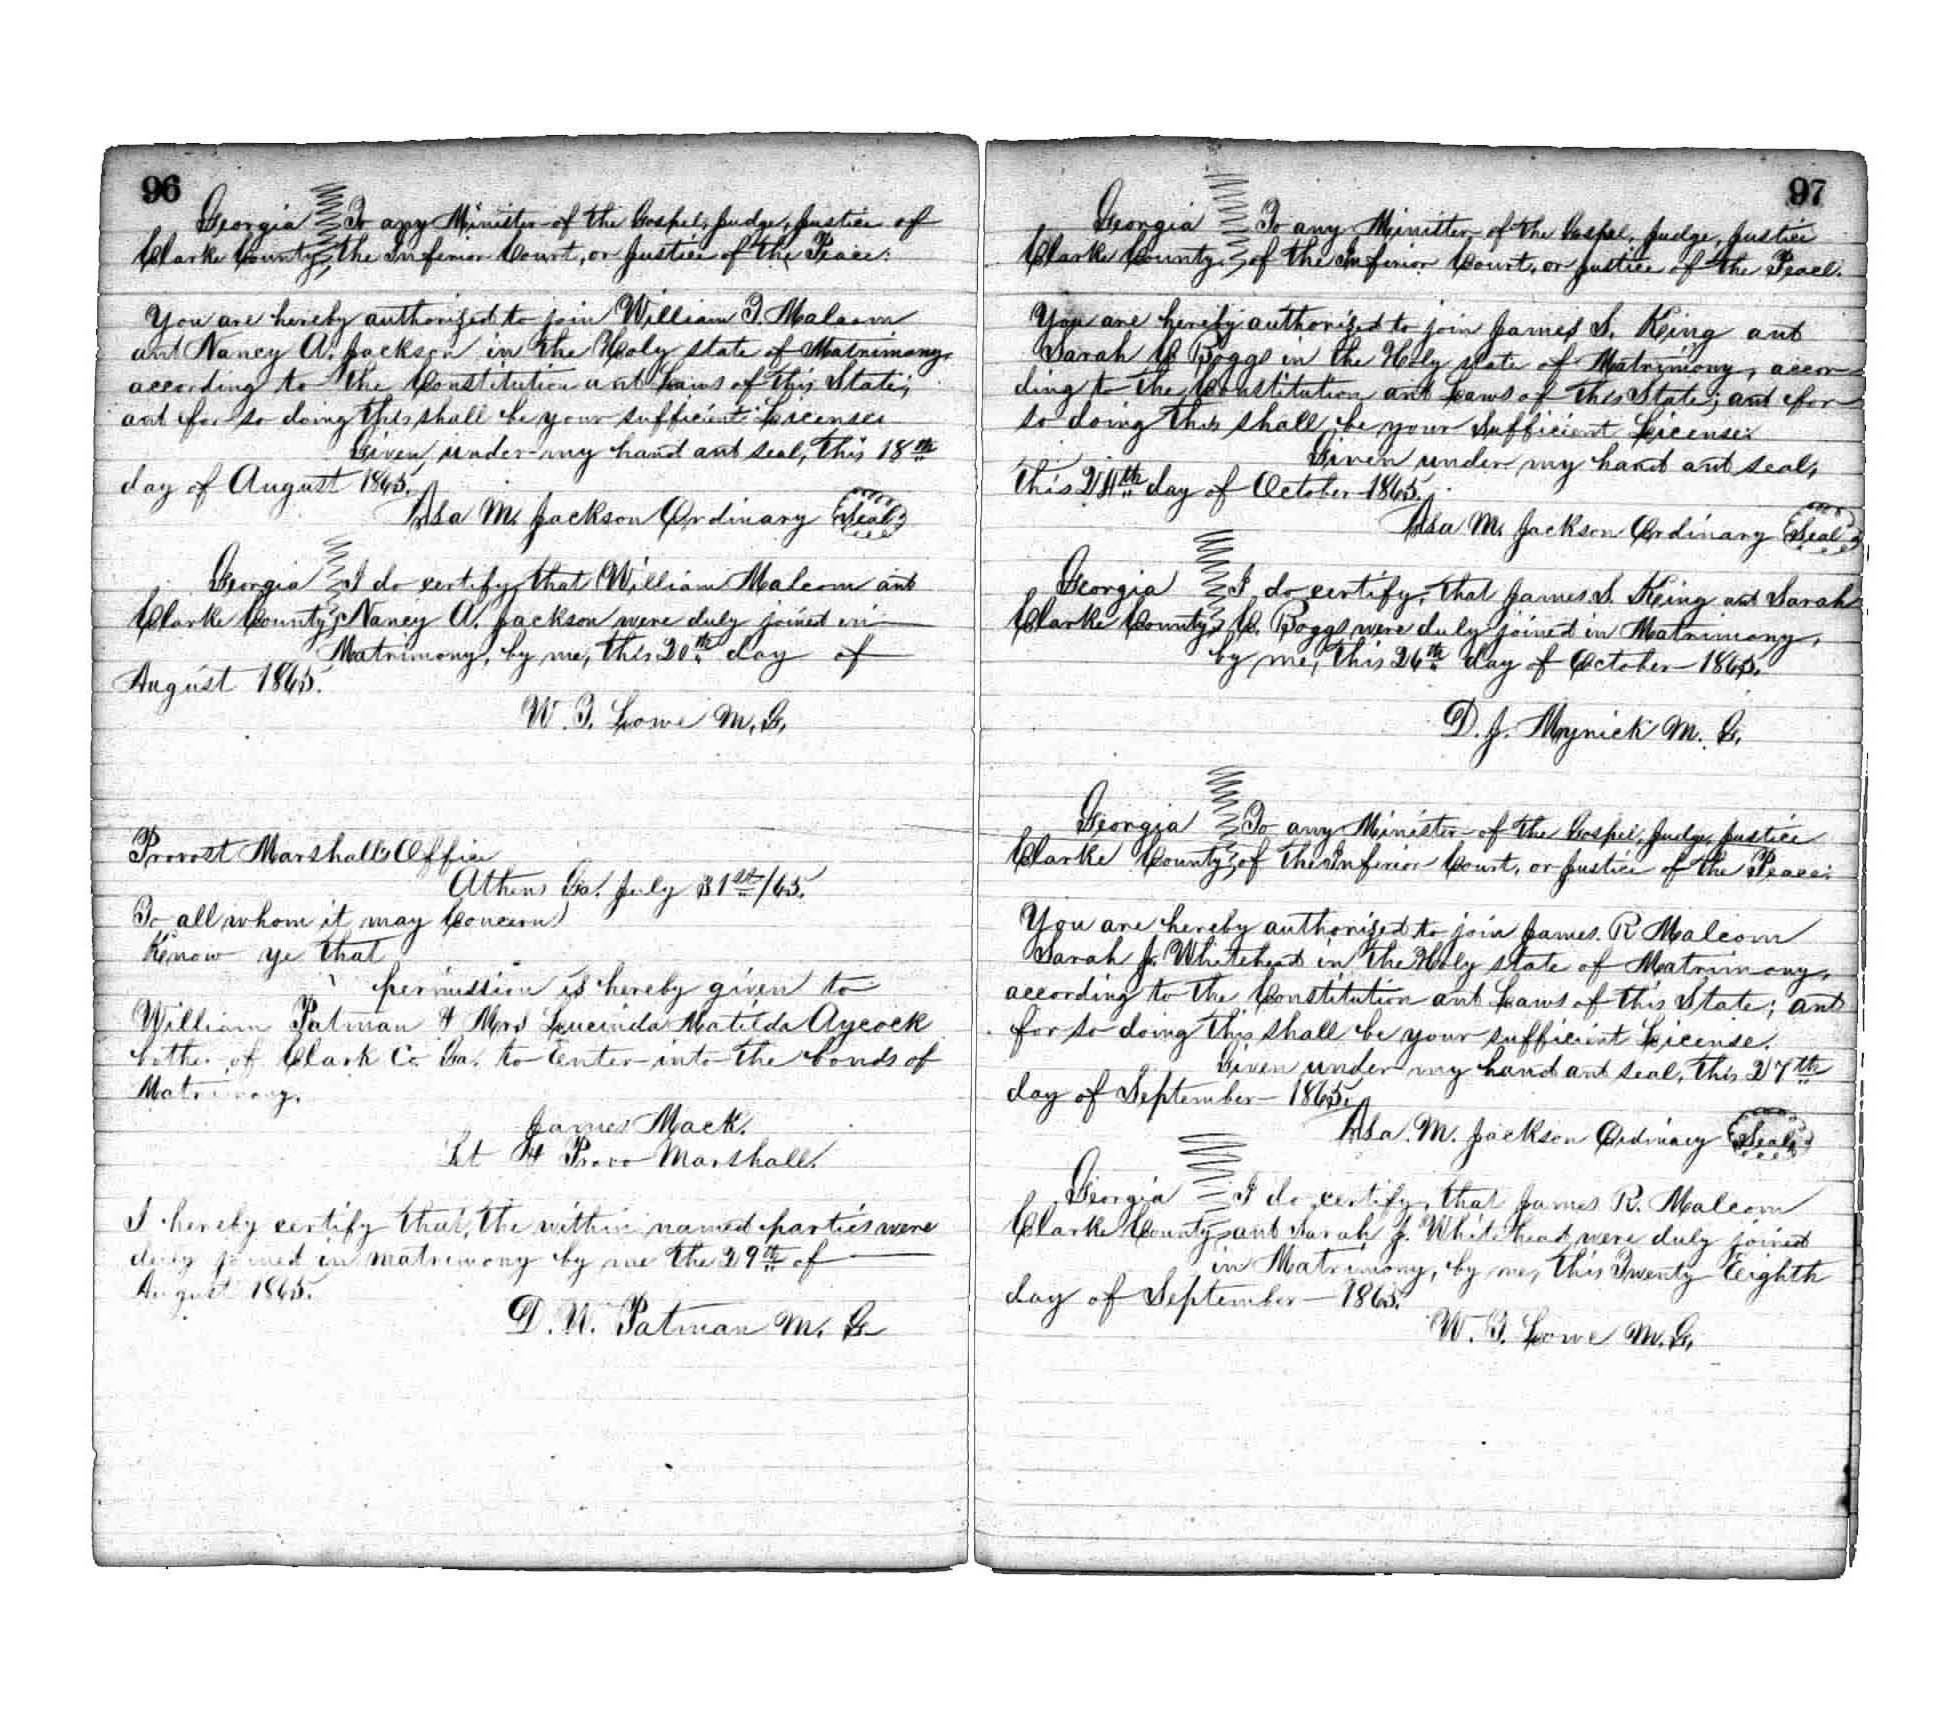 96
Georgia To any Minister of the Gospel, Judge, Justice of
Clarke County the Inferior Court, or Justice of the Peace:
You are hereby authorized to join William T. Malcom
and Nancy A. Jackson in the Holy state of Matrimony,
according to the Constitution and Laws of this State;
and for so doing this shall be your sufficient License
Given under my hand and seal, this 18th
day of August 1865.
Asa M. Jackson Ordinary Seal
Georgia I do certify, that William Malcom and
Clarke County Nancy A. Jackson were duly joined in
Matrimony, by me, this 20th day of
August 1865.
W. T. Lowe M. G.
Provost Marshall's Office
Athens Ga. July 31st/65.
To all whom it may Concern
Know ye that
permission is hereby given to
William Patman & Mrs Lucinda Matilda Aycock
bothe of Clark Co. Ga. to Enter into the bonds of
Matrimony.
James Mack.
Lt & Provo Marshall.
I hereby certify that, the within named parties were
duly joined in matrimony by me the 29th of
August 1865.
D. W. Patman M. G
97
Georgia To any Minister of the Gospel, Judge, Justice
Clarke County of the Inferior Court, or Justice of the Peace.
You are hereby authorized to join James S. King and
Sarah C Boggs in the Holy state of Matrimony, accor-
ding to the Constitution and Laws of this State; and for
so doing this shall be your sufficient License.
Given under my hand and seal,
this 24th day of October 1865.
Asa M. Jackson Ordinary Seal
Georgia I do certify, that James S. King and Sarah
Clarke County C. Boggs were duly joined in Matrimony,
by me, this 26th day of October 1865.
D. J. Mynick M. G.
Georgia To any Minister of the Gospel, Judge, Justice
Clarke County of the Inferior Court, or Justice of the Peace:
You are hereby authorized to join James. R Malcom
Sarah J. Whitehead in the Holy state of Matrimony,
according to the Constitution and Laws of this State; and
for so doing this shall be your sufficient License.
Given under my hand and seal, this 27th
day of September 1865.
Asa. M. Jackson Ordinary Seal
Georgia I do certify, that James R. Malcom
Clarke County and Sarah J. Whitehead were duly joined
in Matrimony, by me, this Twenty Eighth
day of September 1865.
W. T. Lowe M. G.